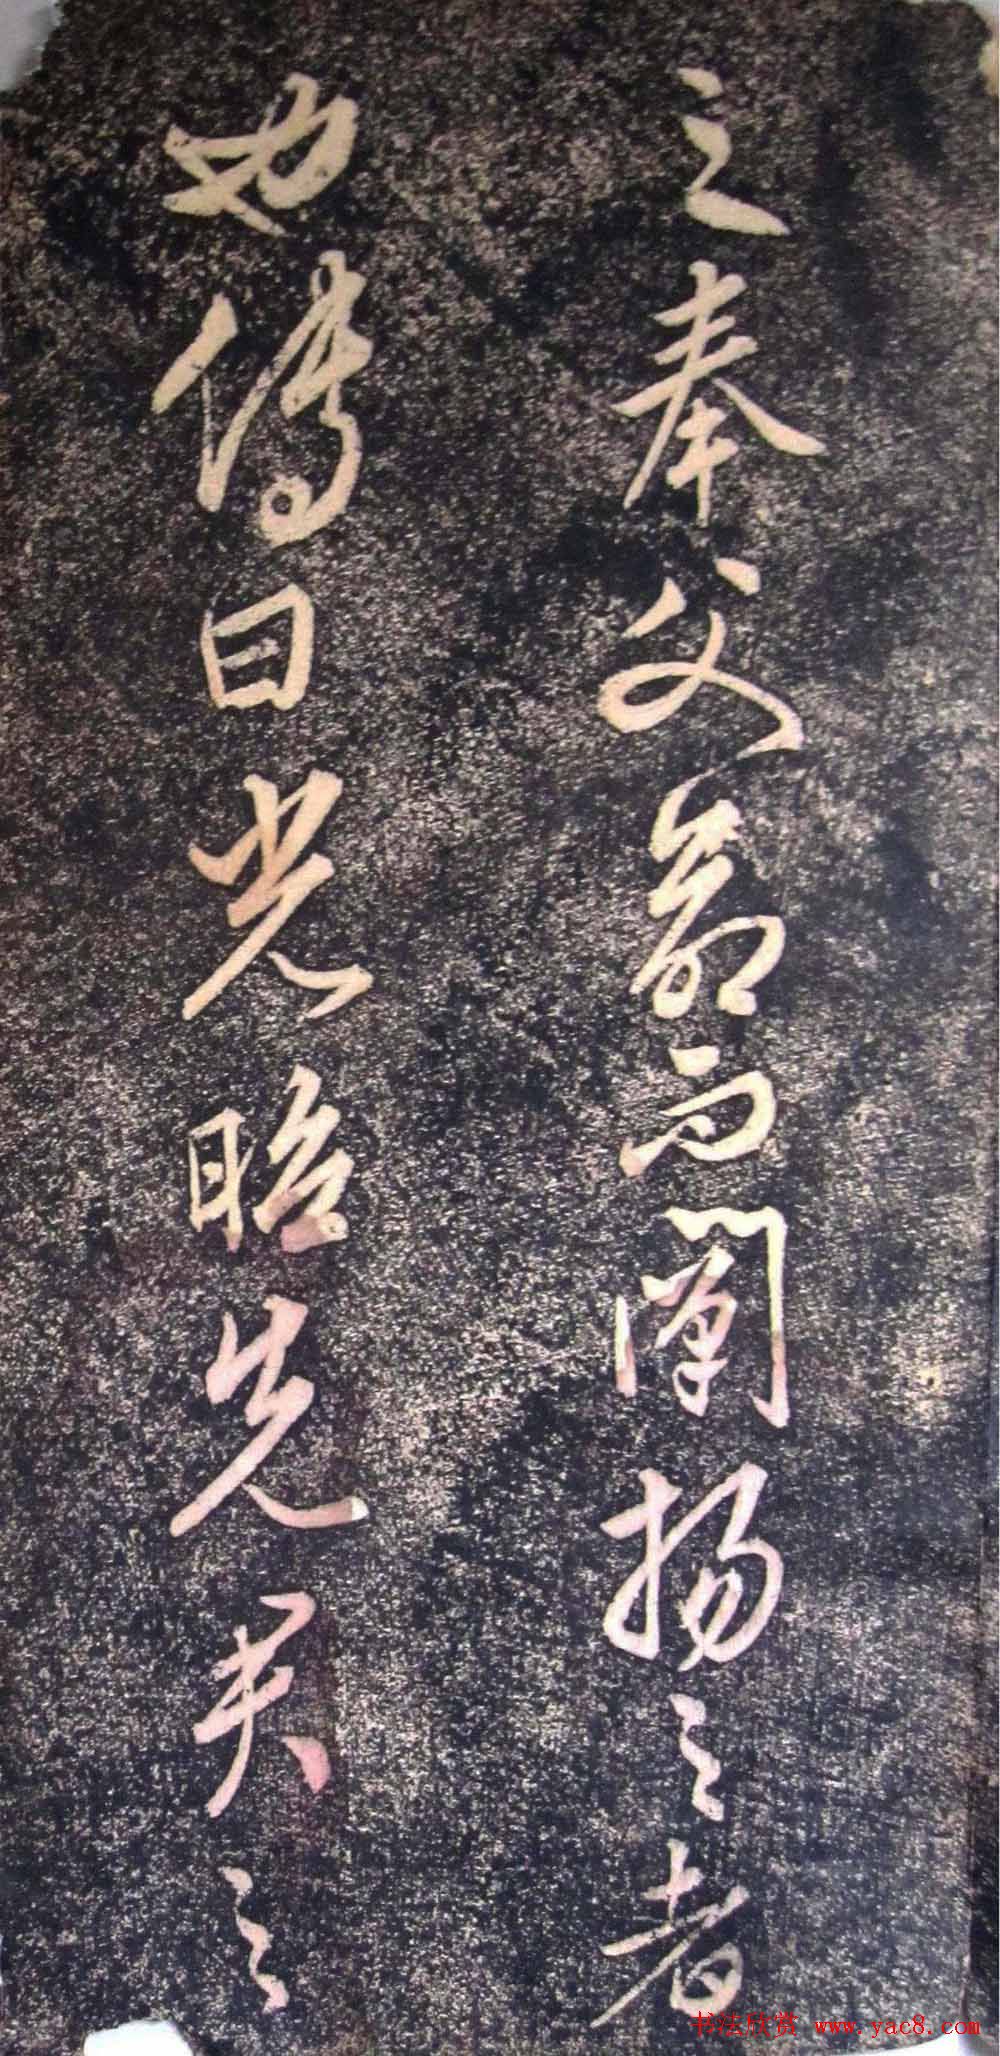 之奉父命而阐扬之者
也傳曰光昭先人之
书法欣赏 www.yac8.com